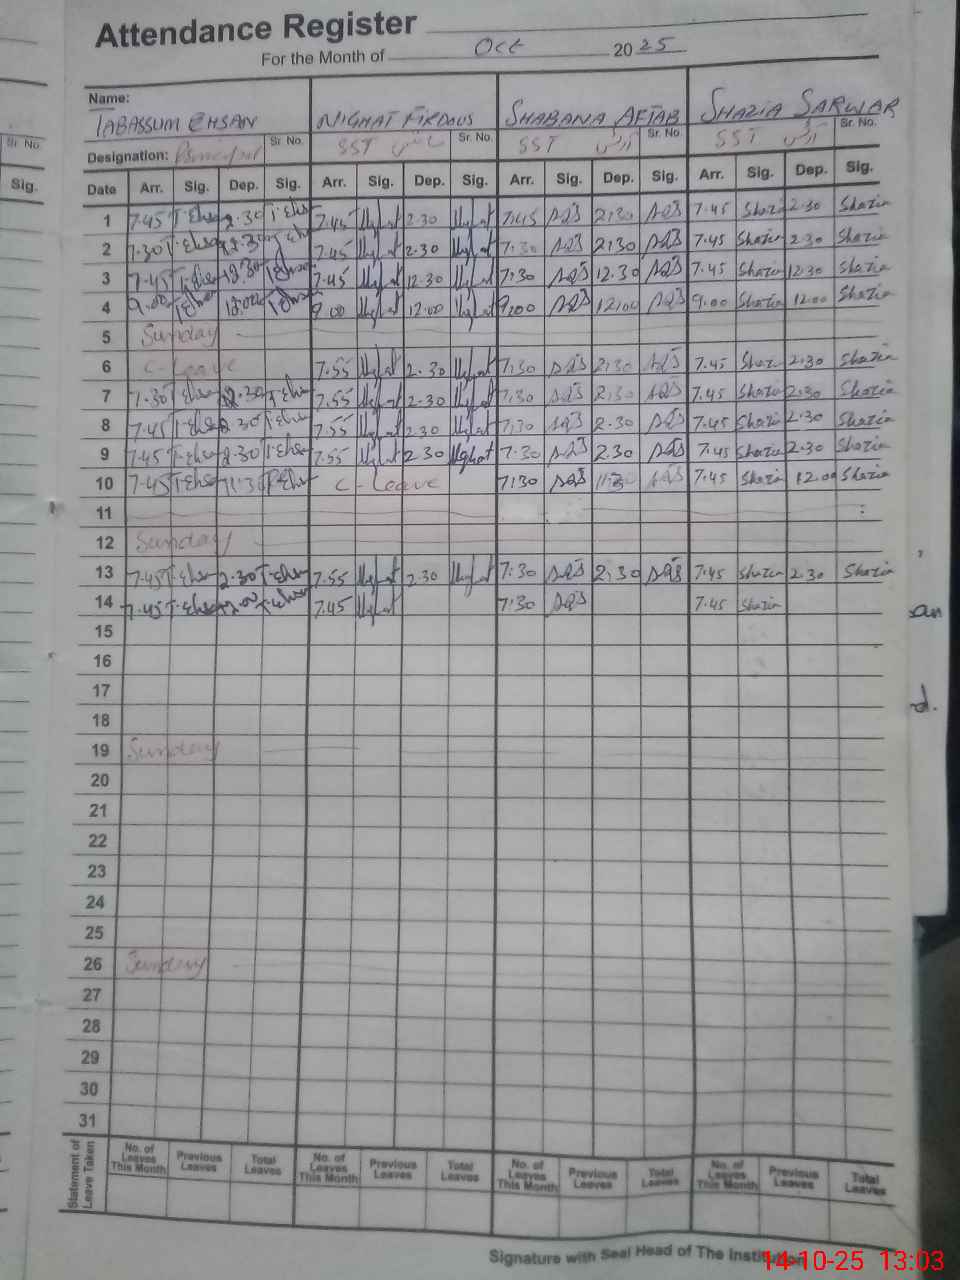 Attendance Register
For the Month of Oct 2025
Name: TABASSUM EHSAN NIGHAT FIRDOUS SHABANA AFTAB SHAZIA SARWAR
Sr. No. Designation: Principal Sr. No. SST سائنس Sr. No. SST آرٹس Sr. No. SST آرٹس Sr. No.
Sig. Date Arr. Sig. Dep. Sig. Arr. Sig. Dep. Sig. Arr. Sig. Dep. Sig. Arr. Sig. Dep. Sig.
1 7.45 T.Ehsan 2.30 T.Ehsan 7.45 Nighat 2.30 Nighat 7:45 2:30 7.45 Shazia 2.30 Shazia
2 7.30 T.Ehsan 7.45 Nighat 2.30 Nighat 7:30 2:30 7.45 Shazia 2.30 Shazia
3 7.45 T.Ehsan 12.30 T.Ehsan 7.45 Nighat 12.30 Nighat 7:30 12.30 7.45 Shazia 12.30 Shazia
4 9.00 T.Ehsan 12.00 T.Ehsan 9.00 Nighat 12.00 Nighat 9:00 12:00 9.00 Shazia 12.00 Shazia
5 Sunday
6 C-Leave 7.55 Nighat 2.30 Nighat 7:30 2:30 7.45 Shazia 2.30 Shazia
7 7.30 T.Ehsan 2.30 T.Ehsan 7.55 Nighat 2.30 Nighat 7:30 2:30 7.45 Shazia 2.30 Shazia
8 7.45 T.Ehsan 2.30 T.Ehsan 7.55 Nighat 2.30 Nighat 7:30 2.30 7.45 Shazia 2.30 Shazia
9 7.45 T.Ehsan 2.30 T.Ehsan 7.55 Nighat 2.30 Nighat 7:30 2.30 7.45 Shazia 2.30 Shazia
10 7.45 T.Ehsan 11.30 T.Ehsan C-Leave 7:30 7.45 Shazia 12.00 Shazia
11
12 Sunday
13 7.45 T.Ehsan 2.30 T.Ehsan 7.55 Nighat 2.30 Nighat 7:30 2:30 7.45 Shazia 2.30 Shazia
14 7.45 T.Ehsan T.Ehsan 7.45 Nighat 7:30 7.45 Shazia
15
16
17
18
19 Sunday
20
21
22
23
24
25
26 Sunday
27
28
29
30
31
Statement of Leave Taken No. of Leaves This Month Previous Leaves Total Leaves No. of Leaves This Month Previous Leaves Total Leaves No. of Leaves This Month Previous Leaves Total Leaves No. of Leaves This Month Previous Leaves Total Leaves
Signature with Seal Head of The Institution
14-10-25 13:03